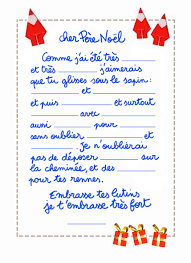 cher Père Noël
Comme j'ai été très ______
et très ______ j'aimerais
que tu glisses sous le sapin:
______ et ______
et puis ______ et surtout
______ avec ______
aussi ______ pour ______
sans oublier ______ et ______
______. Je n'oublierai
pas de déposer ______ sur
la cheminée, et des ______
pour tes rennes.
Embrasse tes lutins
je t'embrasse très fort
______